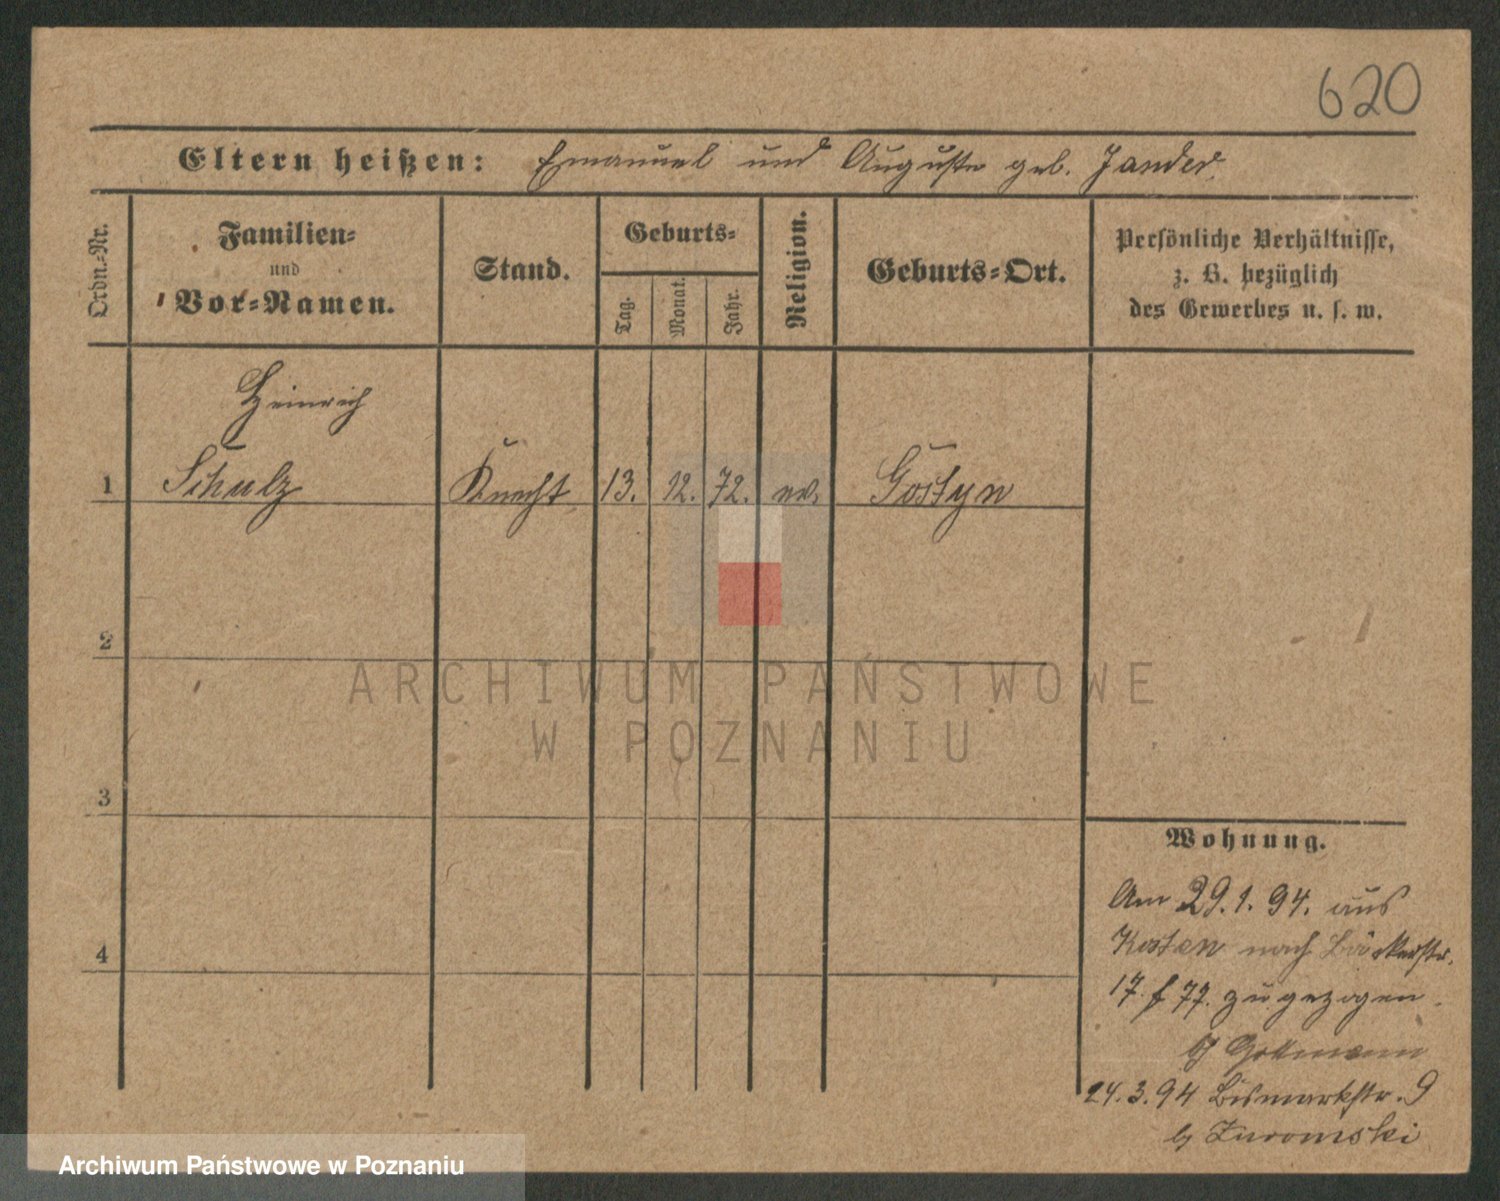 620
Eltern heißen: Emanuel und Auguste geb. Jander.
Ordn.-Nr.
Familien-
und
Vor-Namen.
Stand.
Geburts-
Tag.
Monat.
Jahr.
Religion.
Geburts-Ort.
Persönliche Verhältnisse,
z. B. bezüglich
des Gewerbes u. s. w.
Heinrich
1 Schulz Knecht 13. 12. 72. ev. Gostyn
2
3
4
Wohnung.
Am 29.1.94. aus
Kosten nach Bäckerstr.
17 f 77. zugezogen.
24.3.94 Bismarkstr. 9
b Zuromski
ARCHIWUM PAŃSTWOWE
W POZNANIU
Archiwum Państwowe w Poznaniu